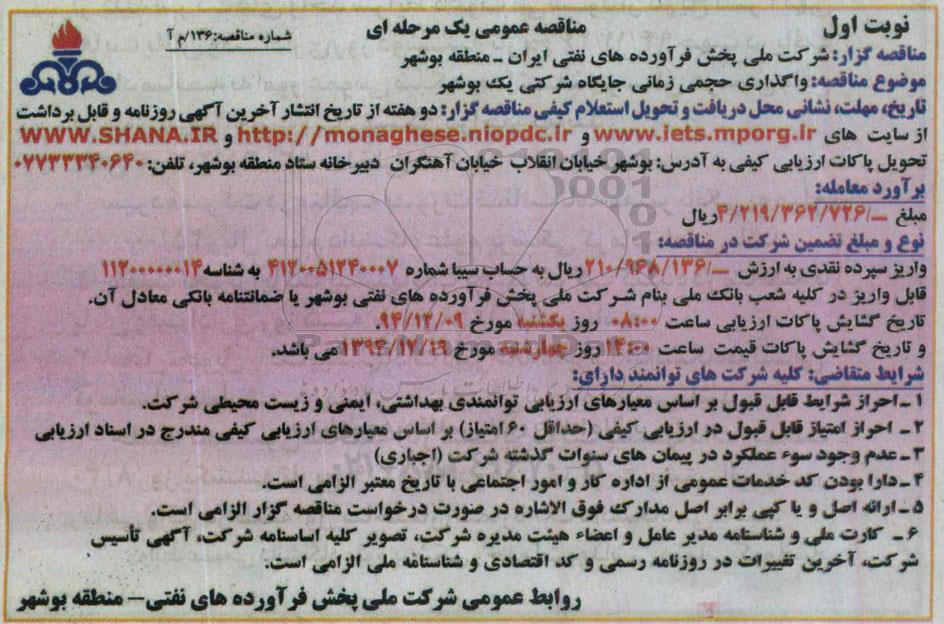 نوبت اول
مناقصه عمومی یک مرحله ای
شماره مناقصه: ۱۳۶/م آ
مناقصه گزار: شرکت ملی پخش فرآورده های نفتی ایران ـ منطقه بوشهر
موضوع مناقصه: واگذاری حجمی زمانی جایگاه شرکتی یک بوشهر
تاریخ، مهلت، نشانی محل دریافت و تحویل استعلام کیفی مناقصه گزار: دو هفته از تاریخ انتشار آخرین آگهی روزنامه و قابل برداشت
از سایت های www.iets.mporg.ir و http://monaghese.niopdc.ir و WWW.SHANA.IR
تحویل پاکات ارزیابی کیفی به آدرس: بوشهر خیابان انقلاب خیابان آهنگران دبیرخانه ستاد منطقه بوشهر، تلفن: ۰۷۷۳۳۳۴۰۶۴۰
برآورد معامله:
مبلغ ـ/۴/۲۱۹/۳۶۲/۷۲۶ ریال
نوع و مبلغ تضمین شرکت در مناقصه:
واریز سپرده نقدی به ارزش ـ/۲۱۰/۹۶۸/۱۳۶ ریال به حساب سیبا شماره ۴۱۲۰۰۵۱۲۴۰۰۰۷ به شناسه ۱۱۲۰۰۰۰۰۰۱۴
قابل واریز در کلیه شعب بانک ملی بنام شرکت ملی پخش فرآورده های نفتی بوشهر یا ضمانتنامه بانکی معادل آن.
تاریخ گشایش پاکات ارزیابی ساعت ۰۸:۰۰ روز یکشنبه مورخ ۹۴/۱۲/۰۹.
و تاریخ گشایش پاکات قیمت ساعت ۱۴:۰۰ روز چهارشنبه مورخ ۱۳۹۴/۱۲/۱۹ می باشد.
شرایط متقاضی: کلیه شرکت های توانمند دارای:
۱ ـ احراز شرایط قابل قبول بر اساس معیارهای ارزیابی توانمندی بهداشتی، ایمنی و زیست محیطی شرکت.
۲ ـ احراز امتیاز قابل قبول در ارزیابی کیفی (حداقل ۶۰ امتیاز) بر اساس معیارهای ارزیابی کیفی مندرج در اسناد ارزیابی
۳ ـ عدم وجود سوء عملکرد در پیمان های سنوات گذشته شرکت (اجباری)
۴ ـ دارا بودن کد خدمات عمومی از اداره کار و امور اجتماعی با تاریخ معتبر الزامی است.
۵ ـ ارائه اصل و یا کپی برابر اصل مدارک فوق الاشاره در صورت درخواست مناقصه گزار الزامی است.
۶ ـ کارت ملی و شناسنامه مدیر عامل و اعضاء هیئت مدیره شرکت، تصویر کلیه اساسنامه شرکت، آگهی تأسیس
شرکت، آخرین تغییرات در روزنامه رسمی و کد اقتصادی و شناسنامه ملی الزامی است.
روابط عمومی شرکت ملی پخش فرآورده های نفتی – منطقه بوشهر